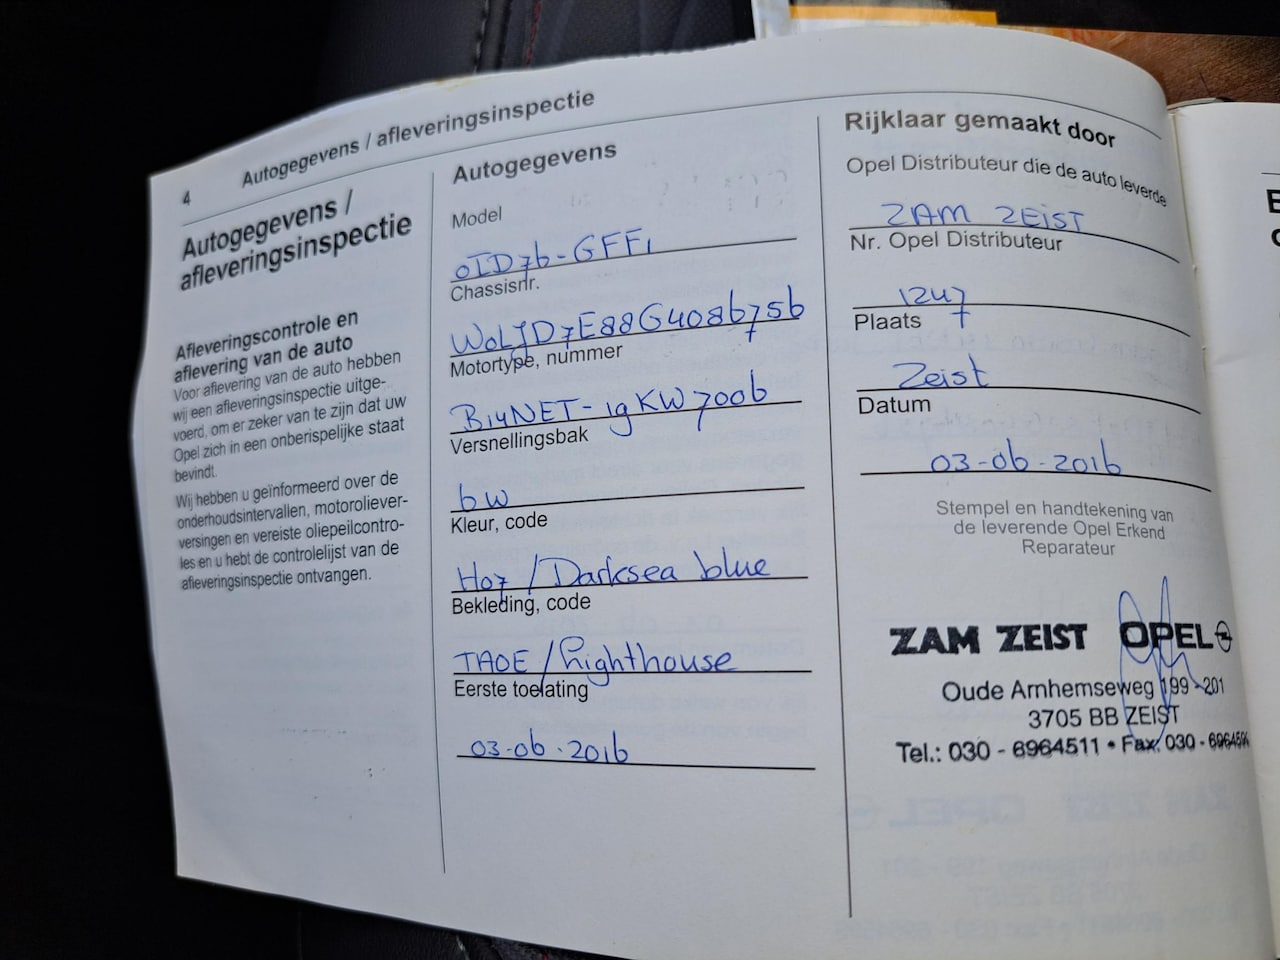 4 Autogegevens / afleveringsinspectie
Autogegevens /
afleveringsinspectie
Afleveringscontrole en
aflevering van de auto
Voor aflevering van de auto hebben
wij een afleveringsinspectie uitge-
voerd, om er zeker van te zijn dat uw
Opel zich in een onberispelijke staat
bevindt.
Wij hebben u geïnformeerd over de
onderhoudsintervallen, motoroliever-
versingen en vereiste oliepeilcontro-
les en u hebt de controlelijst van de
afleveringsinspectie ontvangen.
Autogegevens
Model
0JD76-GFF1
Chassisnr.
W0LJD7E88G4086756
Motortype, nummer
B14NET-19KW7006
Versnellingsbak
6W
Kleur, code
H07 / Darksea blue
Bekleding, code
TAOE / Lighthouse
Eerste toelating
03-06-2016
Rijklaar gemaakt door
Opel Distributeur die de auto leverde
ZAM ZEIST
Nr. Opel Distributeur
1247
Plaats
Zeist
Datum
03-06-2016
Stempel en handtekening van
de leverende Opel Erkend
Reparateur
ZAM ZEIST OPEL
Oude Arnhemseweg 199-201
3705 BB ZEIST
Tel.: 030 - 6964511 • Fax: 030 -